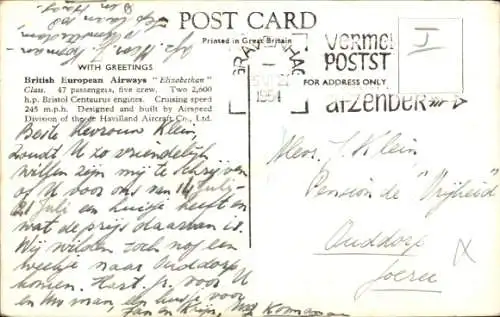 POST CARD
Printed in Great Britain
WITH GREETINGS
British European Airways "Elizabethan"
Class. 47 passengers, five crew. Two 2,600
h.p. Bristol Centaurus engines. Cruising speed
245 m.p.h. Designed and built by Airspeed
Division of the de Havilland Aircraft Co., Ltd.
Beste Mevrouw Klein,
Zoudt U zo vriendelijk
willen zijn mij te schrijven
of U voor ons van 14 July-
21 Juli een huisje heeft en
wat de prijs daarvan is.
Wij wilden toch nog een
weekje naar Ouddorp
komen. Hart. gr. voor U
en Uw man, een kusje voor
Jan en Krijn,
1954
VERMELD
POSTST
FOR ADDRESS ONLY
afzender
I
Mevr. J. Klein
Pension de "Vrijheid"
Ouddorp
Goeree
X